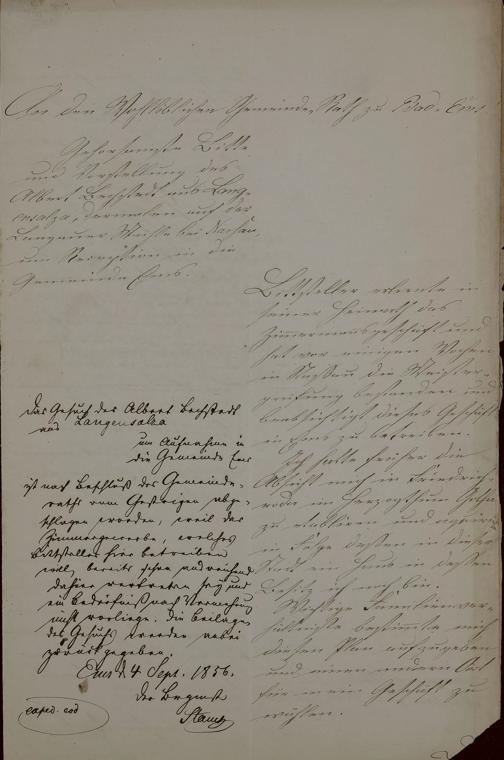 An den Wohllöblichen Gemeinde Rath zu Bad-Ems
Gehorsamste Bitte
und Vorstellung des
Albert Bechstedt aus Lang-
ensalza, dermalen auf der
Langauer Mühle bei Nassau,
um Reception in die
Gemeinde Ems.
Bittsteller erlernte in
seiner Heimath das
Zimmermannsgeschäft und
hat vor einigen Wochen
in Nassau die Meister-
prüfung bestanden und
beabsichtigt dieses Geschäft
in Ems zu betreiben.
Ich hatte früher die
Absicht mich in Friedrich-
roda im Herzogthum Gotha
zu etabliren und
in Folge dessen in dieser
Stadt ein Haus in dessen
Besitz ich noch bin.
Wichtige Familienver-
hältnisse bestimmte mich
diesen Plan aufzugeben
und einen andern Ort
für mein Geschäft zu
wählen.
Das Gesuch des Albert Bechstedt
aus Langensalza
um Aufnahme in
die Gemeinde Ems
ist nach Beschluß des Gemeinde-
raths vom Gestrigen abge-
schlagen worden, weil das
Zimmergewerbe, welches
Bittsteller hier betreiben
will, bereits schon ausreichend
dahier vertreten sey und
ein Bedürfniß nach Vermehrung
nicht vorliege. Die Beilagen
des Gesuchs werden anbei
zurückgegeben.
Ems d. 4 Sept. 1856.
Der Brgmstr
Stamm
exped. eod